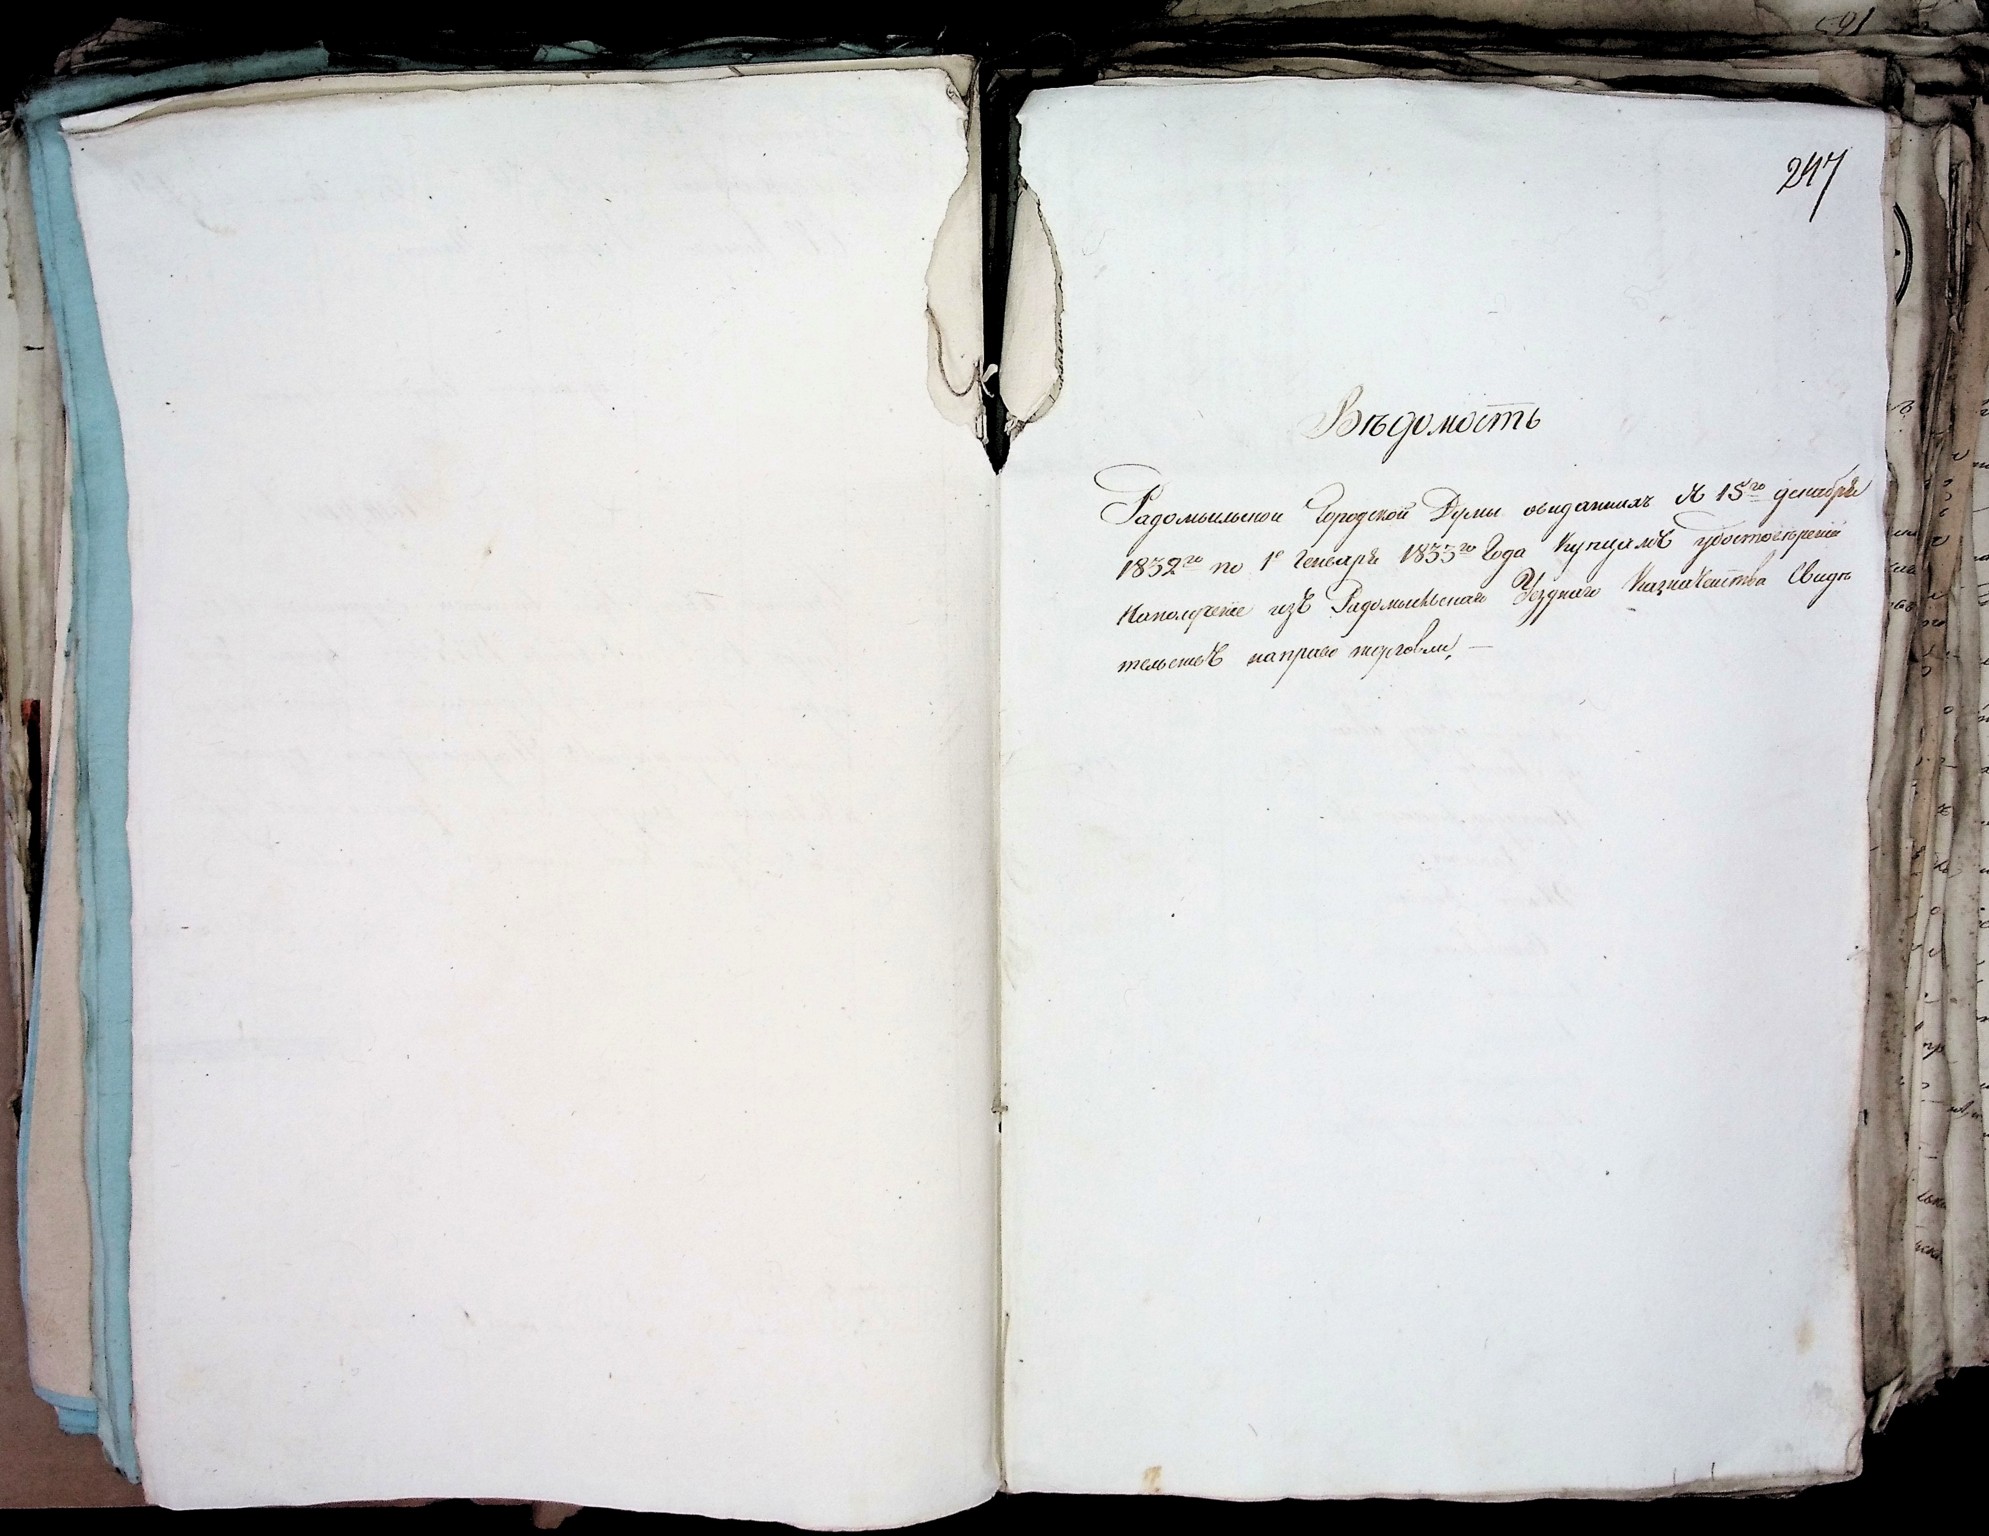 247
Вѣдомость
Радомыльской Городской Думы овиданныхъ съ 15го декабря
1832го по 1е Генваря 1833го Года Купцамъ удостовѣренiй
Наполученiе изъ Радомыльскаго Уезднаго Казначейства Свидѣ
тельствъ направо торговли. —